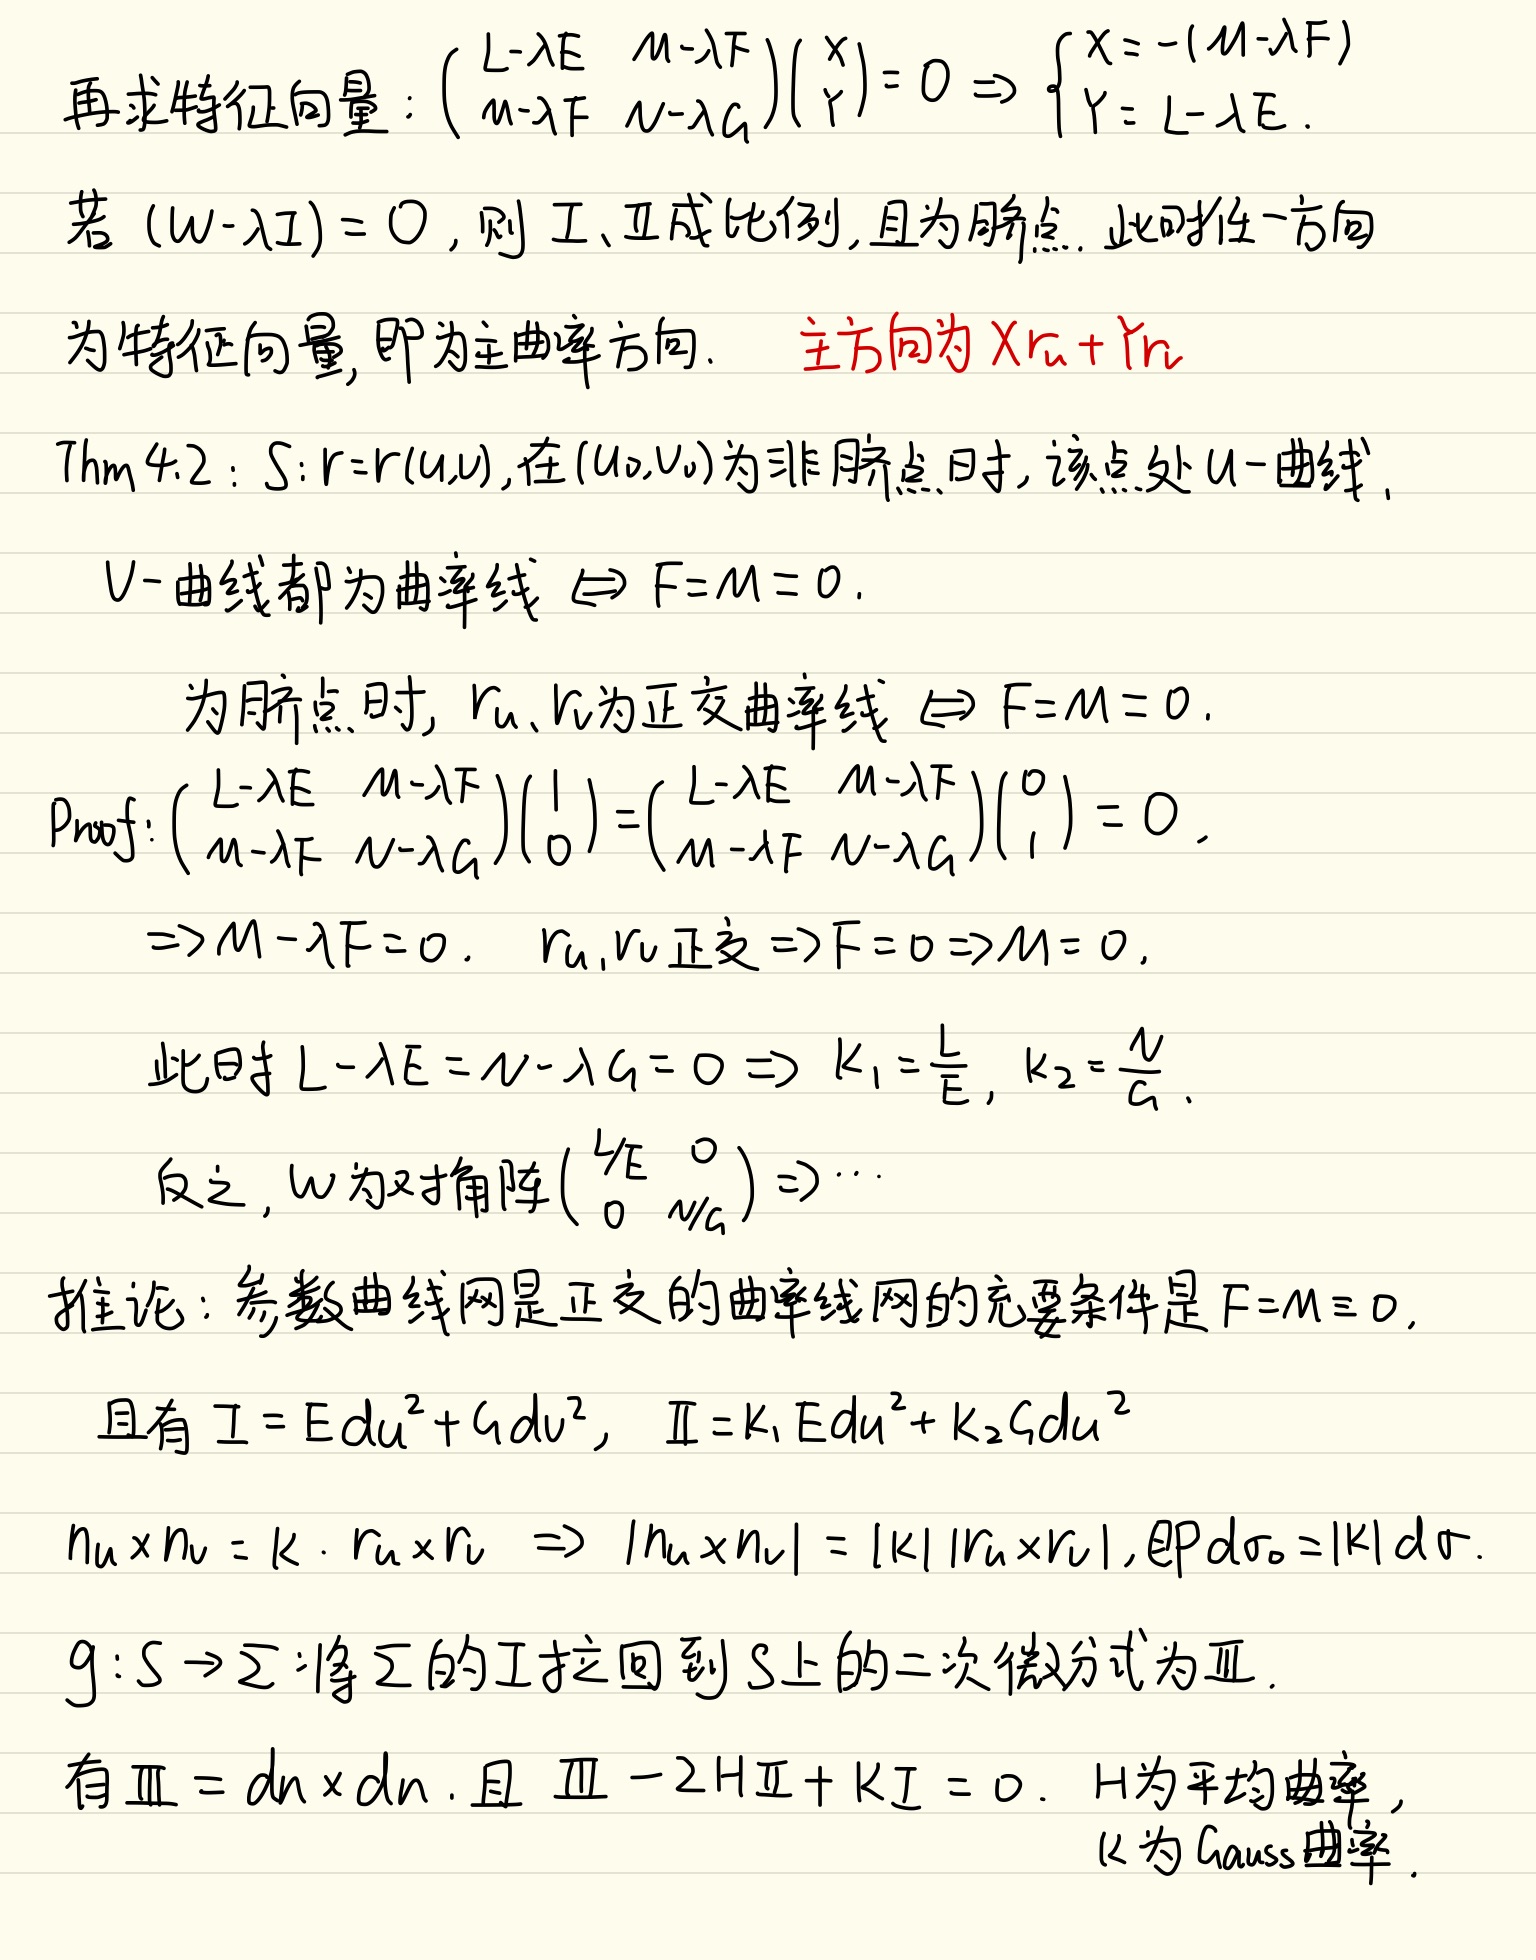 再求特征向量: $\begin{pmatrix} L-\lambda E & M-\lambda F \\ M-\lambda F & N-\lambda G \end{pmatrix}\begin{pmatrix} X \\ Y \end{pmatrix} = 0 \Rightarrow \begin{cases} X = -(M-\lambda F) \\ Y = L-\lambda E. \end{cases}$
若 (W-λI) = 0, 则 I、II成比例,且为脐点. 此时任一方向
为特征向量,即为主曲率方向. 主方向为 $Xr_u + Yr_v$
Thm 4.2: S: r=r(u,v),在$(u_0,v_0)$为非脐点时,该点处u-曲线、
v-曲线都为曲率线 ⇔ F=M=0.
为脐点时, $r_u$、$r_v$为正交曲率线 ⇔ F=M=0.
Proof: $\begin{pmatrix} L-\lambda E & M-\lambda F \\ M-\lambda F & N-\lambda G \end{pmatrix}\begin{pmatrix} 1 \\ 0 \end{pmatrix} = \begin{pmatrix} L-\lambda E & M-\lambda F \\ M-\lambda F & N-\lambda G \end{pmatrix}\begin{pmatrix} 0 \\ 1 \end{pmatrix} = 0$,
⇒ M-λF=0. $r_u, r_v$ 正交 ⇒ F=0 ⇒ M=0.
此时 L-λE = N-λG = 0 ⇒ $k_1 = \frac{L}{E}$, $k_2 = \frac{N}{G}$.
反之, W为对角阵 $\begin{pmatrix} L/E & 0 \\ 0 & N/G \end{pmatrix}$ ⇒ …
推论: 参数曲线网是正交的曲率线网的充要条件是 F=M≡0.
且有 $I = Edu^2 + Gdv^2$, $II = k_1Edu^2 + k_2Gdu^2$
$n_u × n_v = k · r_u × r_v$ ⇒ $|n_u × n_v| = |k||r_u × r_v|$, 即$dσ_0 = |k|dσ$.
g: S → Σ: 将Σ的I拉回到S上的二次微分式为III.
有 III = dn × dn. 且 III - 2HII + KI = 0. H为平均曲率,
K为Gauss曲率.